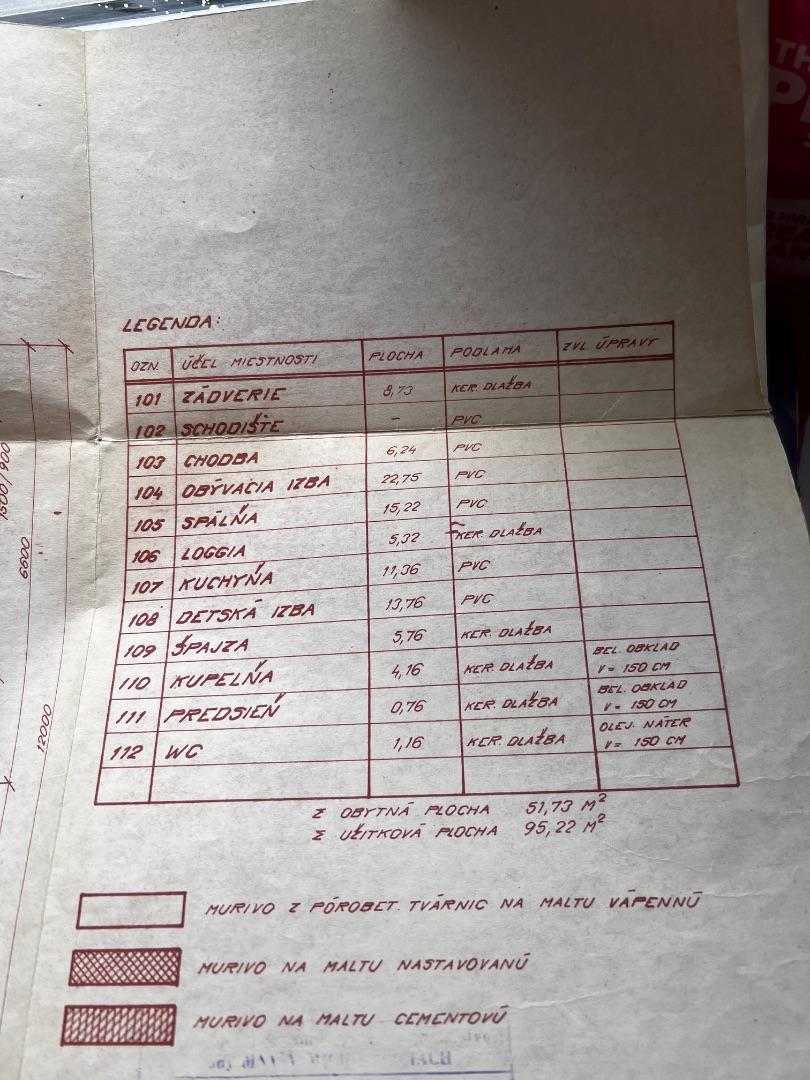 LEGENDA:
OZN. ÚČEL MIESTNOSTI PLOCHA PODLAHA ZVL. ÚPRAVY
101 ZÁDVERIE 8,73 KER. DLAŽBA
102 SCHODIŠTE – PVC
103 CHODBA 6,24 PVC
104 OBÝVACIA IZBA 22,75 PVC
105 SPÁLŇA 15,22 PVC
106 LOGGIA 5,32 KER. DLAŽBA
107 KUCHYŇA 11,36 PVC
108 DETSKÁ IZBA 13,76 PVC
109 ŠPAJZA 5,76 KER. DLAŽBA
110 KUPELŇA 4,16 KER. DLAŽBA BEL. OBKLAD
V = 150 CM
111 PREDSIEŇ 0,76 KER. DLAŽBA BEL. OBKLAD
V = 150 CM
112 WC 1,16 KER. DLAŽBA OLEJ. NÁTER
V = 150 CM
Σ OBYTNÁ PLOCHA 51,73 M²
Σ UŽITKOVÁ PLOCHA 95,22 M²
MURIVO Z PÓROBET. TVÁRNIC NA MALTU VÁPENNÚ
MURIVO NA MALTU NASTAVOVANÚ
MURIVO NA MALTU CEMENTOVÚ
1500/900
6600
12000